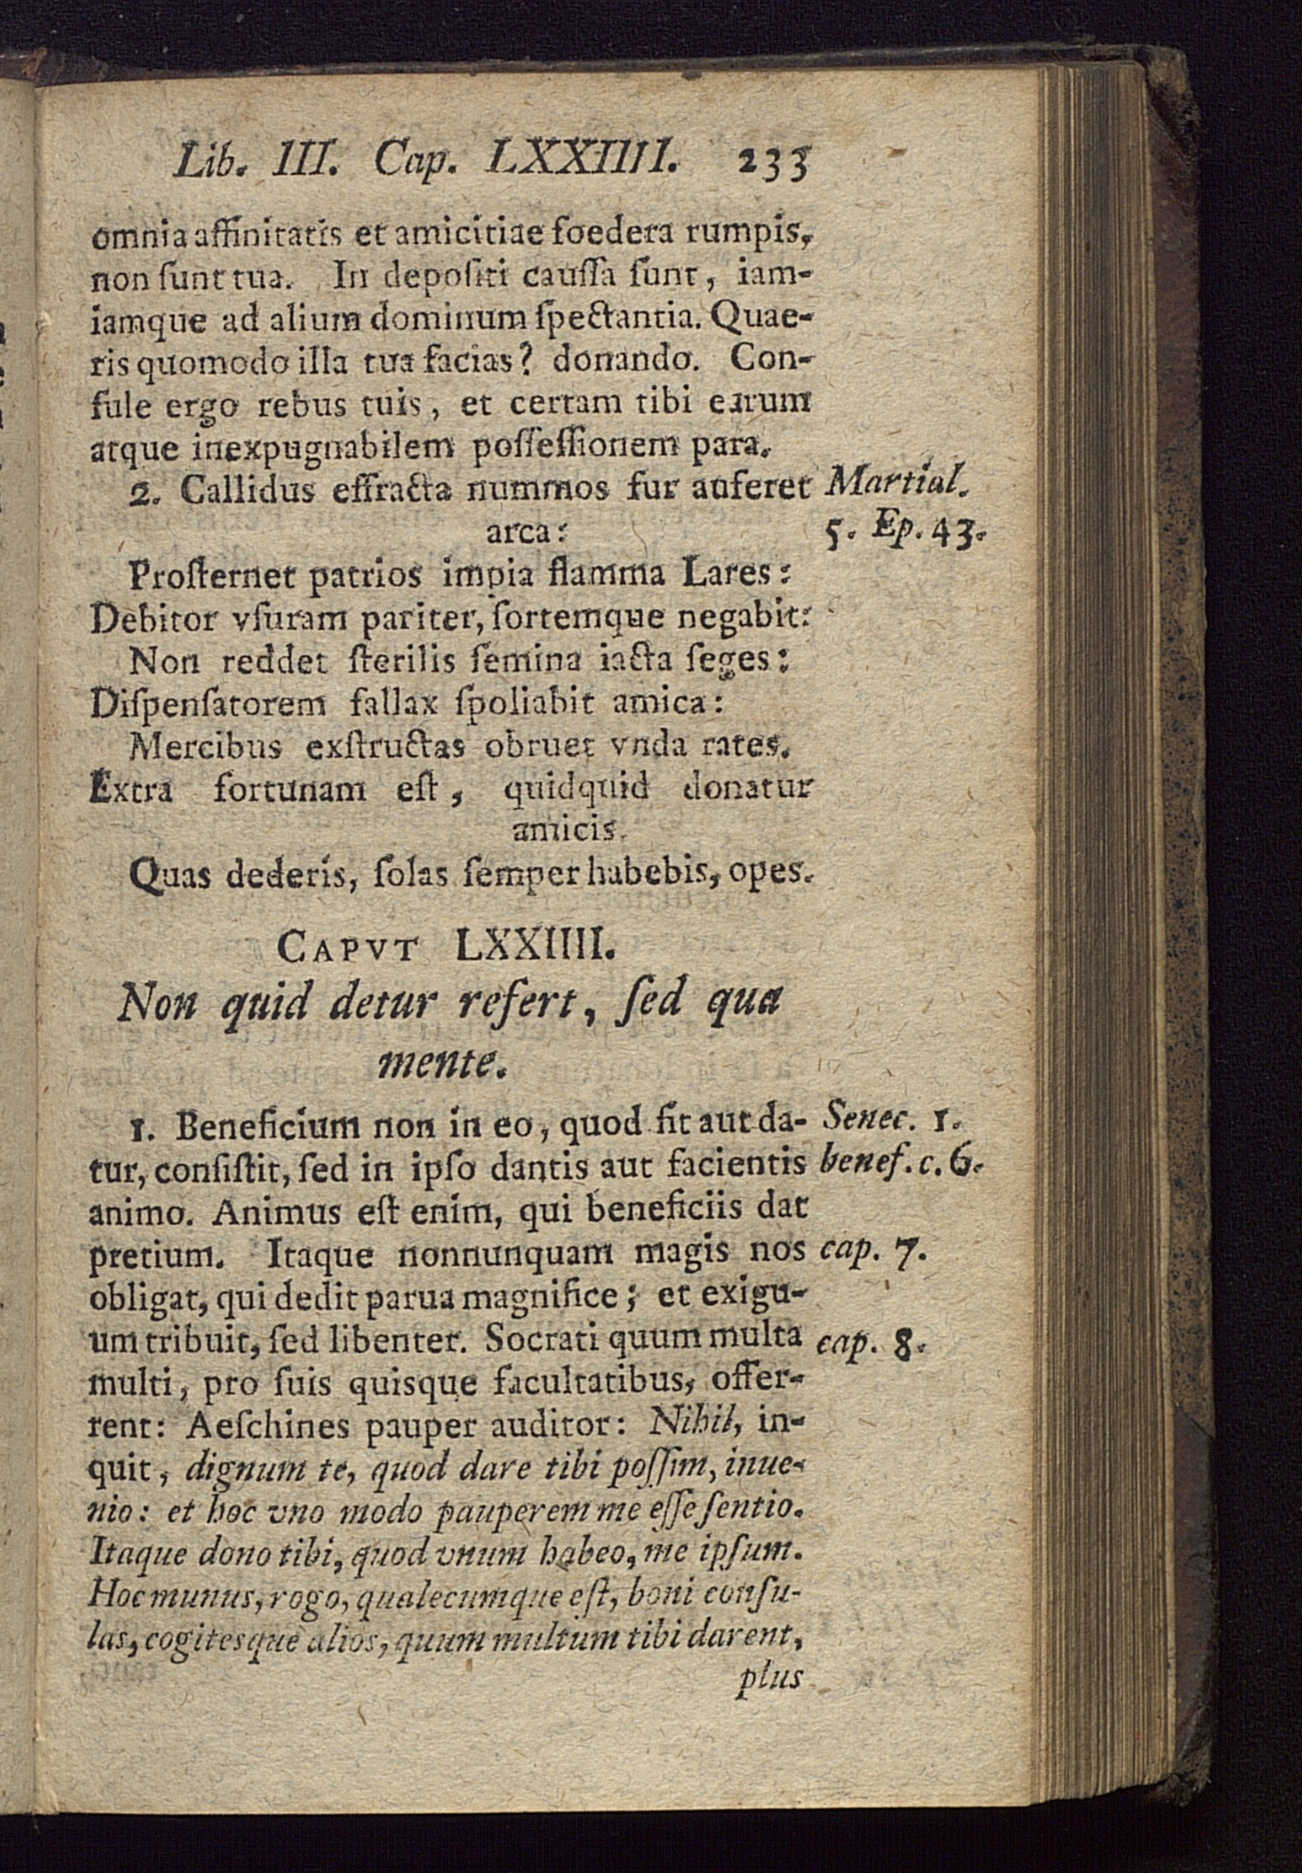 Lib. III. Cap. LXXIIII. 233
omnia affinitatis et amicitiae foedera rumpis,
non ſunt tua. In depoſiti cauſſa ſunt, iam-
iamque ad alium dominum ſpectantia. Quae-
ris quomodo illa tua facias? donando. Con-
ſule ergo rebus tuis, et certam tibi earum
atque inexpugnabilem poſſeſſionem para.
2. Callidus effracta nummos fur auferet Martial.
arca: 5. Ep. 43.
Proſternet patrios impia flamma Lares:
Debitor vſuram pariter, ſortemque negabit:
Non reddet ſterilis ſemina iacta ſeges:
Diſpenſatorem fallax ſpoliabit amica:
Mercibus exſtructas obruet vnda rates.
Extra fortunam eſt, quidquid donatur
amicis.
Quas dederis, ſolas ſemper habebis, opes.
CAPVT LXXIIII.
Non quid detur refert, ſed qua
mente.
1. Beneficium non in eo, quod fit aut da- Senec. 1.
tur, conſiſtit, ſed in ipſo dantis aut facientis benef. c. 6.
animo. Animus eſt enim, qui beneficiis dat
pretium. Itaque nonnunquam magis nos cap. 7.
obligat, qui dedit parua magnifice; et exigu-
um tribuit, ſed libenter. Socrati quum multa cap. 8.
multi, pro ſuis quisque facultatibus, offer-
rent: Aeſchines pauper auditor: Nihil, in-
quit, dignum te, quod dare tibi poſſim, inue-
nio: et hoc vno modo pauperem me eſſe ſentio.
Itaque dono tibi, quod vnum habeo, me ipſum.
Hoc munus, rogo, qualecumque eſt, boni conſu-
las, cogitesque alios, quum multum tibi darent,
plus